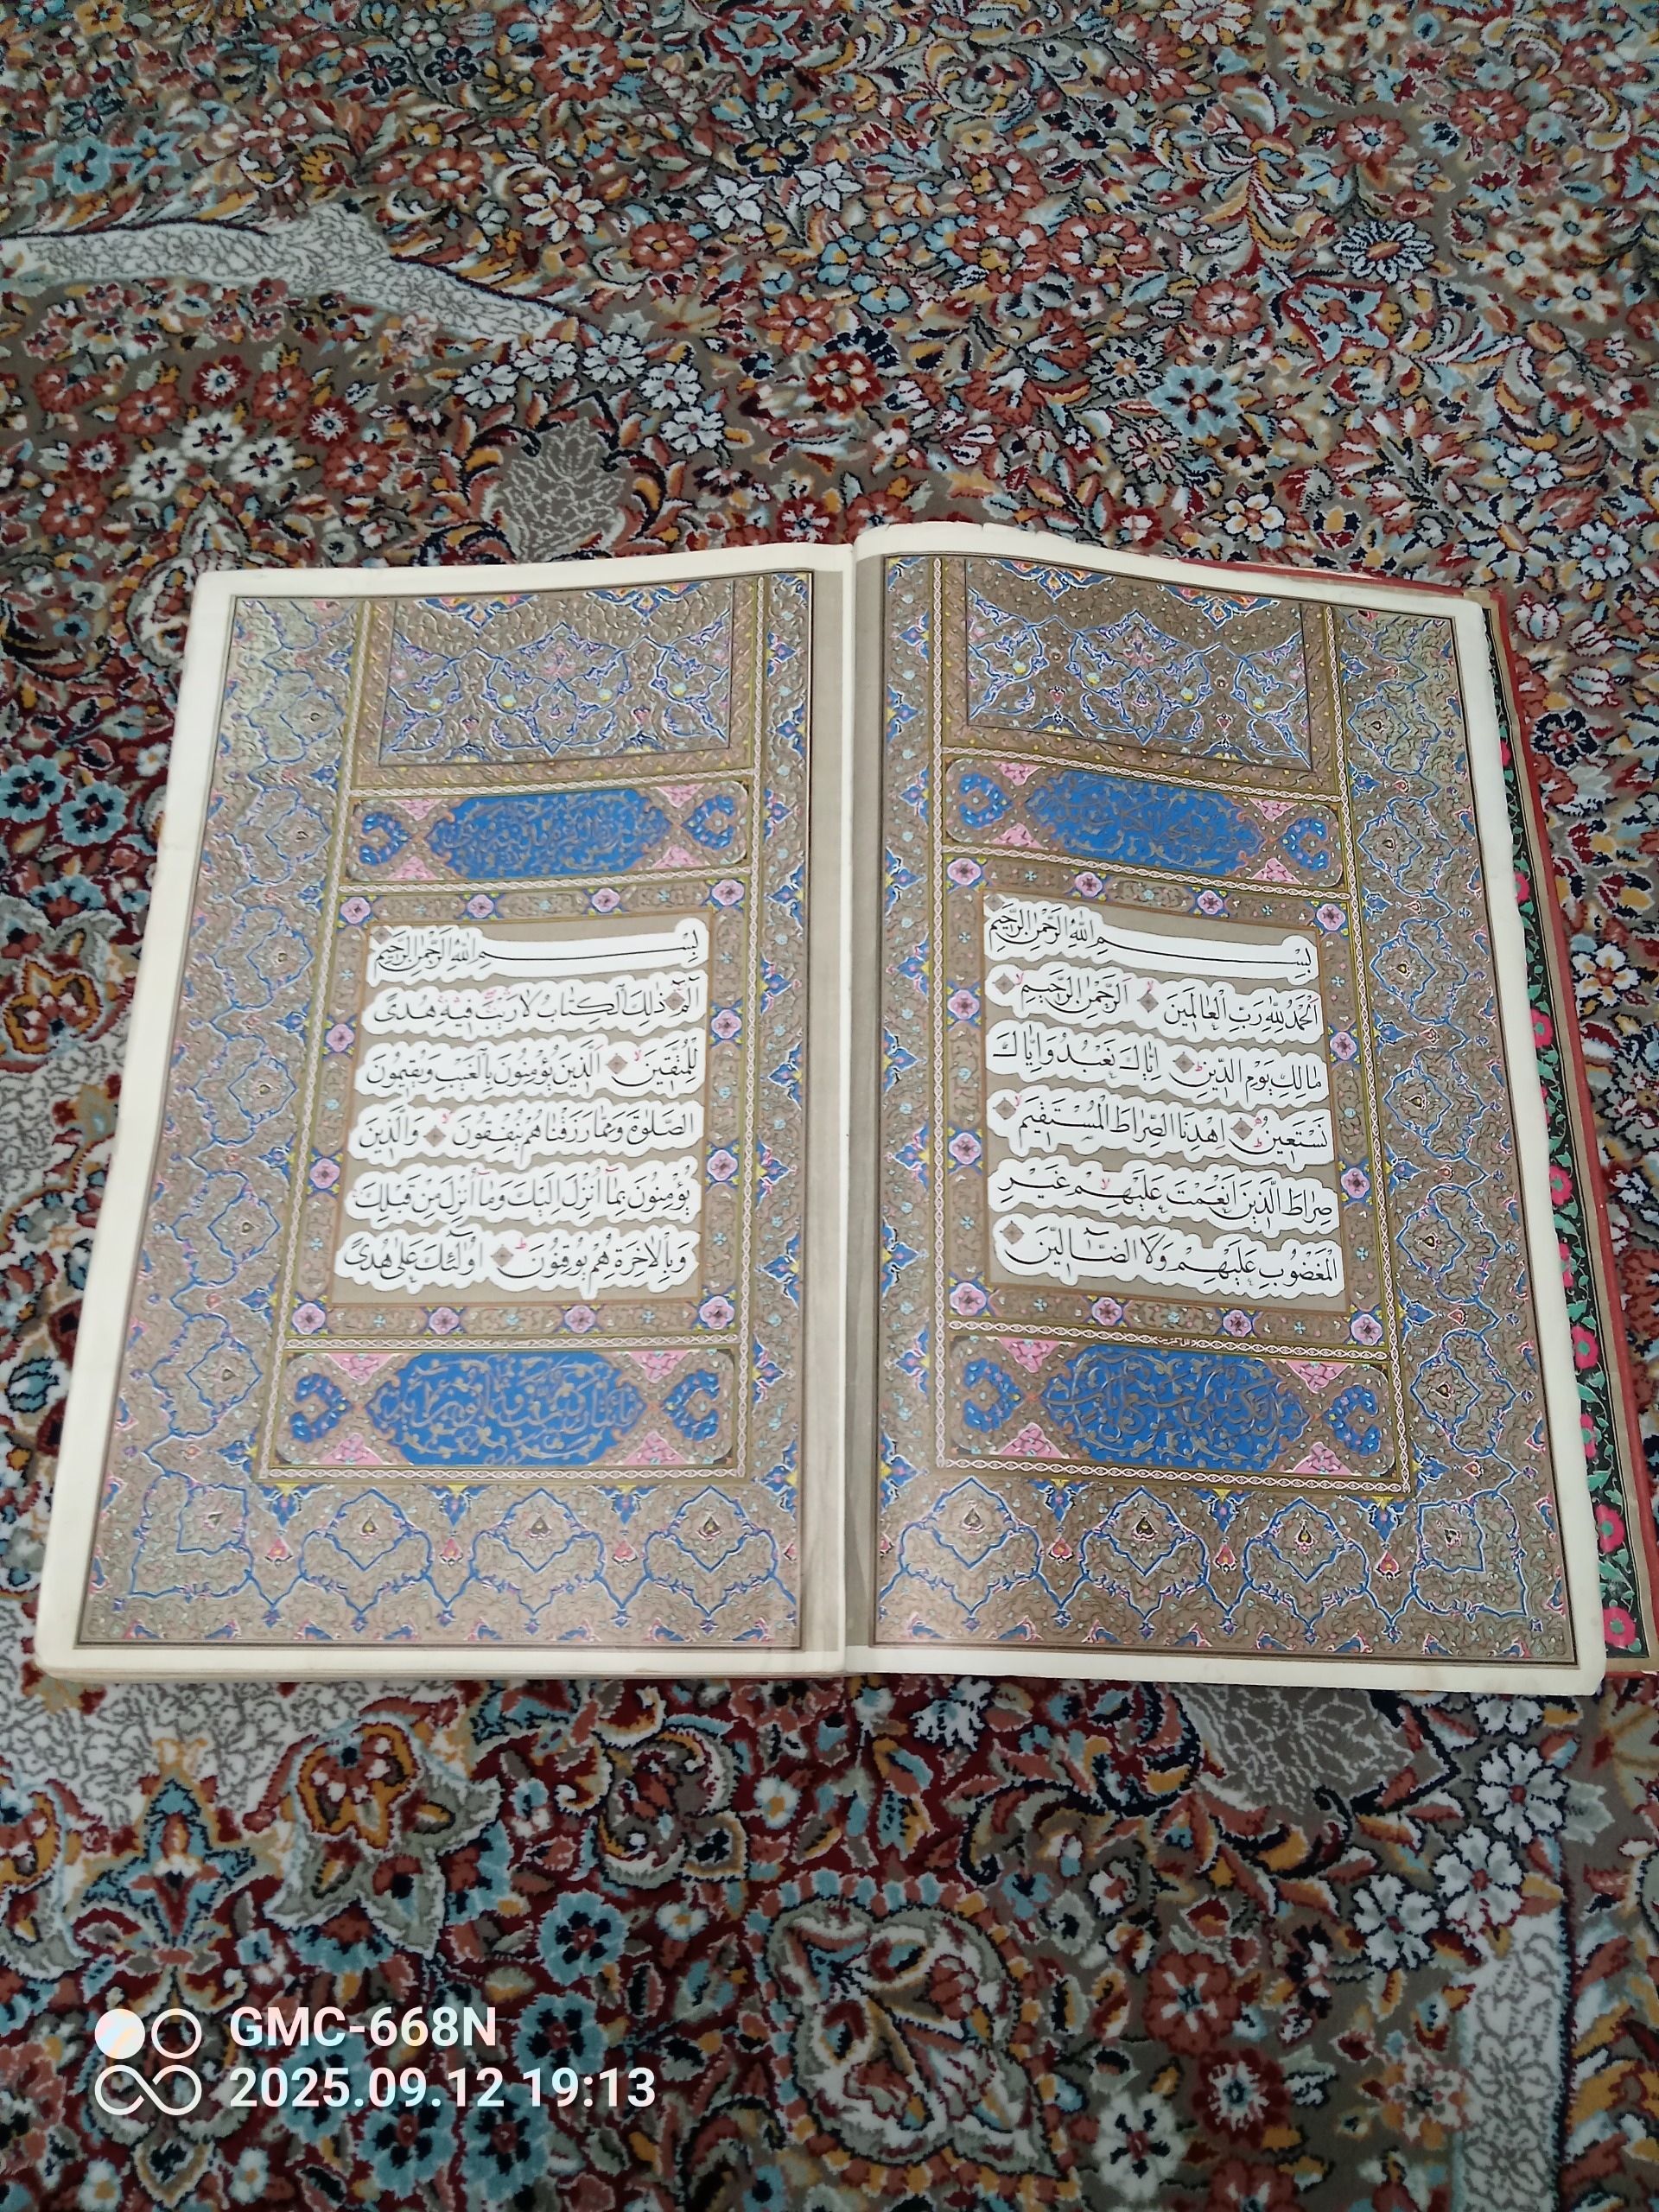 بِسْمِ اللهِ الرَّحْمٰنِ الرَّحیمِ
اَلْحَمْدُ لِلّٰهِ رَبِّ الْعالَمینَ الرَّحْمٰنِ الرَّحیمِ
مالِكِ یَوْمِ الدّینِ اِیّاكَ نَعْبُدُ وَ اِیّاكَ
نَسْتَعینُ اِهْدِنَا الصِّراطَ الْمُسْتَقیمَ
صِراطَ الَّذینَ اَنْعَمْتَ عَلَیْهِمْ غَیْرِ
الْمَغْضُوبِ عَلَیْهِمْ وَلَا الضّٓالّینَ
بِسْمِ اللهِ الرَّحْمٰنِ الرَّحیمِ
الٓمٓ ذٰلِكَ الْكِتابُ لا رَیْبَ فیهِ هُدیً
لِلْمُتَّقینَ اَلَّذینَ یُؤْمِنُونَ بِالْغَیْبِ وَ یُقیمُونَ
الصَّلٰوةَ وَ مِمّا رَزَقْناهُمْ یُنْفِقُونَ وَالَّذینَ
یُؤْمِنُونَ بِمآ اُنْزِلَ اِلَیْكَ وَ مآ اُنْزِلَ مِنْ قَبْلِكَ
وَ بِالْاٰخِرَةِ هُمْ یُوقِنُونَ اُولٰٓئِكَ عَلیٰ هُدیً
GMC-668N
2025.09.12 19:13